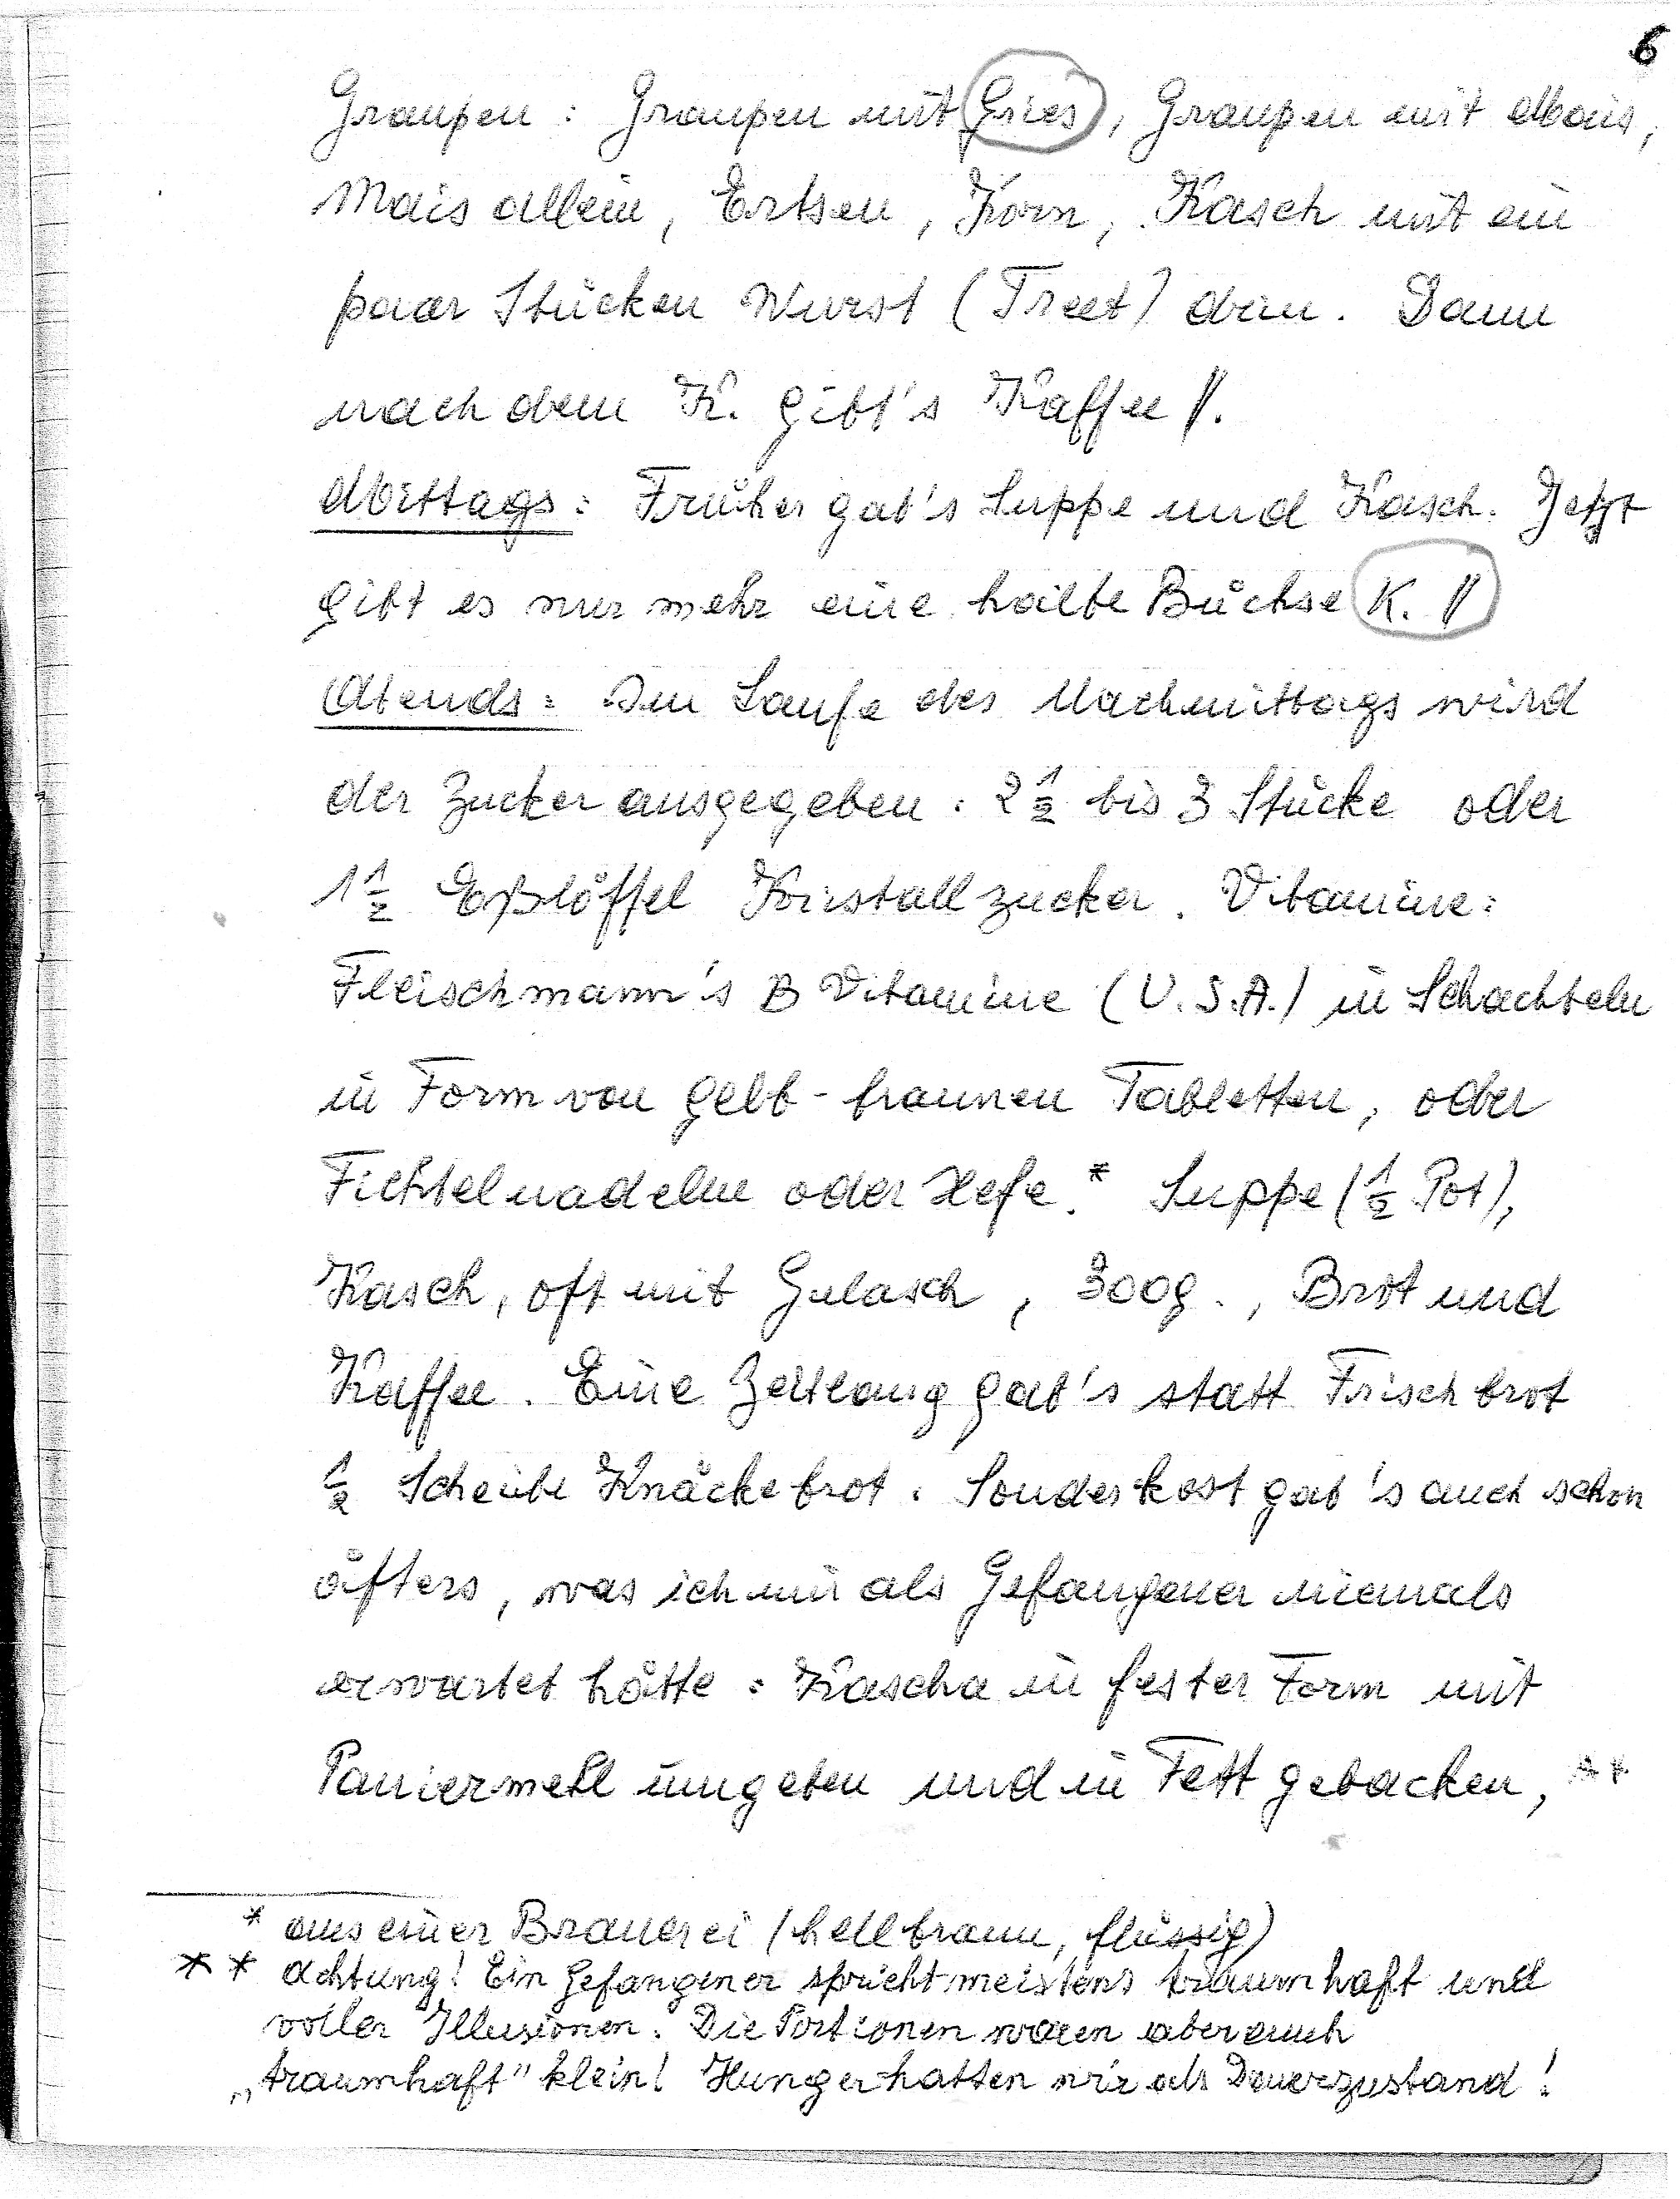 6
Graupen : Graupen mit Gries, Graupen mit Mais,
Mais allein, Erbsen, Korn, Kasch mit ein
paar Stücken Wurst (Treet) drin. Dann
nach dem K. gibt's Kaffee //.
Mittags: Früher gab's Suppe und Kasch. Jetzt
gibt es nur mehr eine halbe Büchse K. //
Abends: Im Laufe des Nachmittags wird
der Zucker ausgegeben: 2 1/2 bis 3 Stücke oder
1 1/2 Eßlöffel Kristallzucker. Vitamine:
Fleischmann's B Vitamine (U.S.A.) in Schachteln
in Form von gelb-braunen Tabletten, oder
Fichtelnadeln oder Hefe.* Suppe (1/2 Pot),
Kasch, oft mit Gulasch, 300g., Brot und
Kaffee. Eine Zeitlang gab's statt Frischbrot
1/2 Scheibe Knäckebrot. Sonderkost gab's auch schon
öfters, was ich mir als Gefangener niemals
erwartet hätte: Kascha in fester Form mit
Paniermehl umgeben und in Fett gebacken, **
* aus einer Brauerei (hellbraun, flüssig)
** Achtung! Ein Gefangener spricht meistens traumhaft und
voller Illusionen. Die Portionen waren aber auch
„traumhaft" klein! Hunger hatten wir als Dauerzustand!